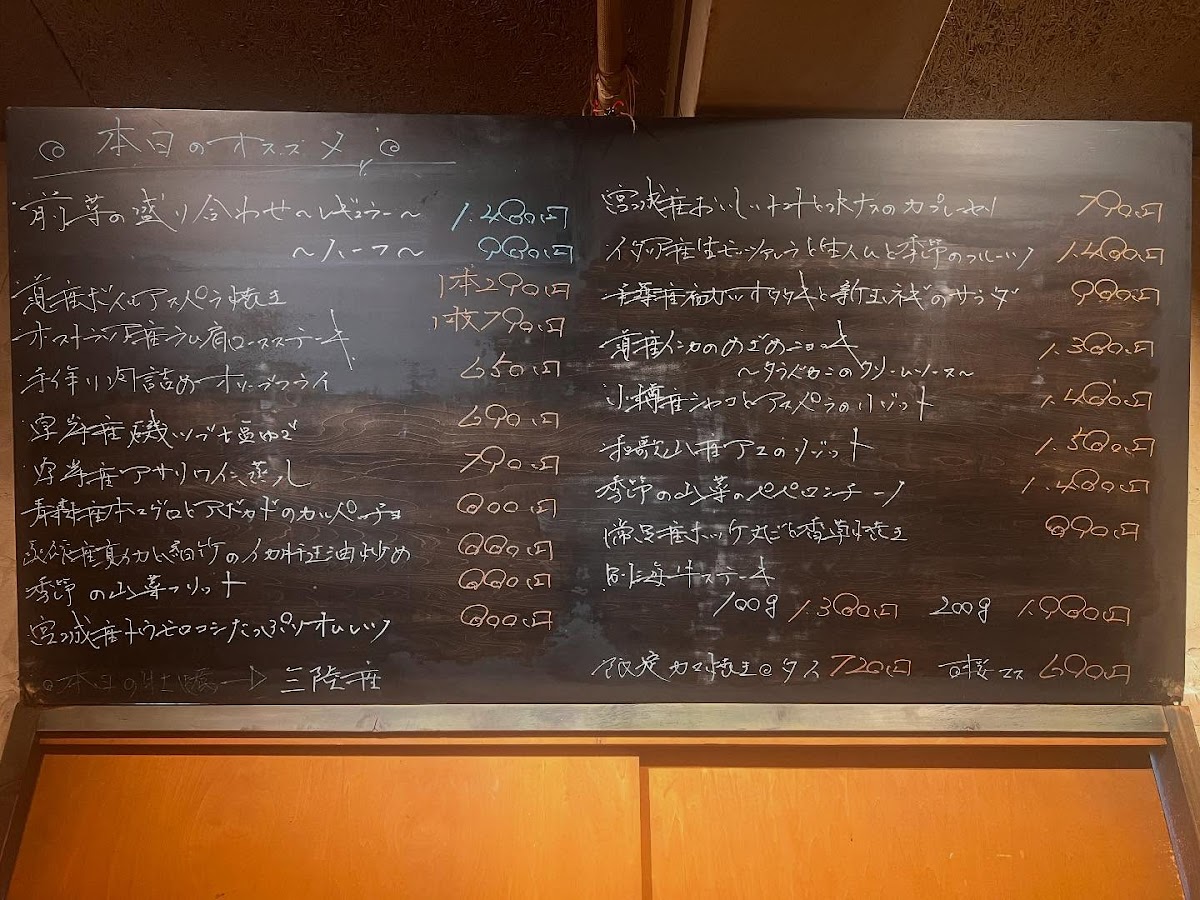 本日のオススメ
前菜の盛り合わせ〜レギュラー〜 1.480円
〜ハーフ〜 980円
産ボイルアスパラ焼き 1本290円
オーストラリア産ラム肩ロースステーキ 1枚790円
手作り肉詰めオリーブフライ 650円
厚岸産磯ツブ塩ゆで 690円
厚岸産アサリワイン蒸し 790円
青森産本マグロとアボカドのカルパッチョ
産真イカと細竹のイカ肝醤油炒め 880円
季節の山菜フリット 880円
宮城産トウモロコシたっぷりオムレツ
三陸産
宮城産おいしいトマトと水ナスのカプレーゼ 790円
イタリア産生モッツァレラと生ハムと季節のフルーツ 1.480円
千葉産初ガツオタタキと新玉ネギのサラダ 980円
産インカのめざめニョッキ 1.380円
〜タラバガニのクリームソース〜
小樽産シャコとアスパラのリゾット 1.480円
和歌山産アユのリゾット 1.580円
季節の山菜のペペロンチーノ 1.480円
産ホッケ丸ごと香草焼き 890円
別海牛ステーキ
100g 1.380円 200g 1.980円
限定カマ焼き タイ 720円 桜マス 690円